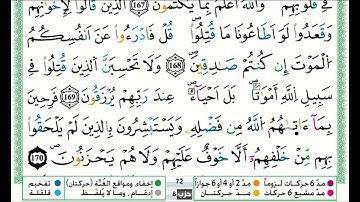 فِى قُلُوبِهِمْ وَاللَّهُ أَعْلَمُ بِمَا يَكْتُمُونَ ١٦٧ الَّذِينَ قَالُوا لِإِخْوَٰنِهِمْ
وَقَعَدُوا لَوْ أَطَاعُونَا مَا قُتِلُوا ۗ قُلْ فَادْرَءُوا عَنْ أَنفُسِكُمُ
الْمَوْتَ إِن كُنتُمْ صَٰدِقِينَ ١٦٨ وَلَا تَحْسَبَنَّ الَّذِينَ قُتِلُوا فِى
سَبِيلِ اللَّهِ أَمْوَٰتًۢا ۚ بَلْ أَحْيَآءٌ عِندَ رَبِّهِمْ يُرْزَقُونَ ١٦٩ فَرِحِينَ
بِمَآ ءَاتَىٰهُمُ اللَّهُ مِن فَضْلِهِۦ وَيَسْتَبْشِرُونَ بِالَّذِينَ لَمْ يَلْحَقُوا
بِهِم مِّنْ خَلْفِهِمْ أَلَّا خَوْفٌ عَلَيْهِمْ وَلَا هُمْ يَحْزَنُونَ ١٧٠
مدّ 6 حركات لزوماً مدّ 2 أو 4 أو 6 جوازاً 72 إخفاء ومواقع الغُنَّة (حركتان) تفخيم
مدّ مشبع 6 حركات مدّ حركتان حزب 8 إدغام , وما لا يُلفَظ قلقلة